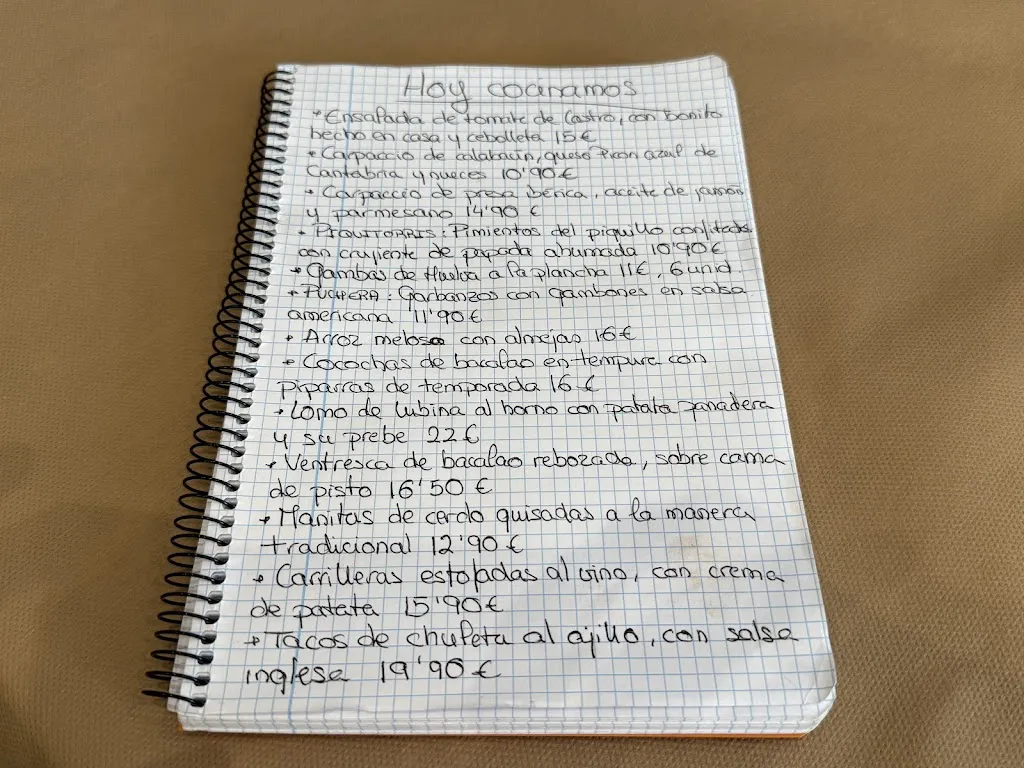 Hoy cocinamos
• Ensalada de tomate de Castro, con bonito
hecho en casa y cebolleta 15€
• Carpaccio de calabacín, queso Picon azul de
Cantabria y nueces 10'90€
• Carpaccio de presa ibérica, aceite de jamón
y parmesano 14'90 €
• PIQUITORRIS: Pimientos del piquillo confitados
con crujiente de papada ahumada 10'90€
• Gambas de Huelva a la plancha 11€, 6 unid.
• PUCHERA: Garbanzos con gambones en salsa
americana 11'90€
• Arroz meloso con almejas 16€
• Cocochas de bacalao en tempura con
piparras de temporada 16€
• Lomo de lubina al horno con patata panadera
y su prebe 22€
• Ventresca de bacalao rebozada, sobre cama
de pisto 16'50 €
• Manitas de cerdo guisadas a la manera
tradicional 12'90€
• Carrilleras estofadas al vino, con crema
de patata 15'90€
• Tacos de chuleta al ajillo, con salsa
inglesa 19'90€